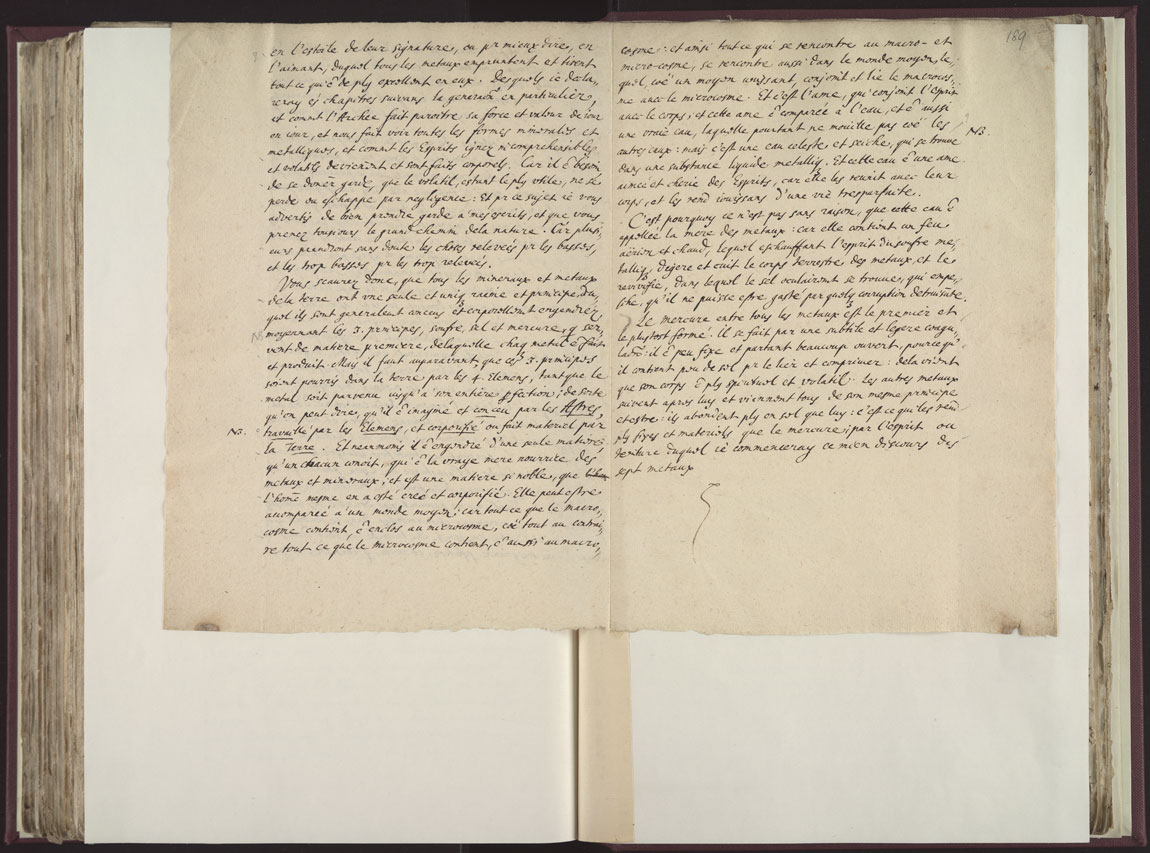 en l'estoile de leur signature, ou pr mieux dire, en
l'aimant, duquel tous les metaux empruntent et tirent
tout ce qu'ê de plꝰ excellent en eux. Desquels ie decla,,
reray és chapitres suivans la generaõn en particulier,
et comẽt l'Archée fait paroitre sa force et valeur de iour
en iour, et nous fait voir toutes les formes minerales et
metalliques, et comẽt les Esprits igneꝫ incomprehensibles
et volatils devienẽt et sont faits corporels. Car il ê besoin
de se doner garde, que le volatil, estant le plꝰ utile, ne se
perde ou eschappe par negligence: Et pr ce sujet ie vous
advertis de bien prendre garde a mes escrits, et que vous
prenez tousiours le grand chemin dela nature. Car plusi,,
eurs prendront sans doute les choses relevées pr les basses,
et les trop basses pr les trop relevées.
Vous scaurez donc, que tous les mineraux et metaux
dela terre ont vne seule et uniqꝫ racine et principe, du,
quel ils sont generalemt conceus et corporellemt engendrez
moyennant les 3. principes, soufre, sel et mercure, qꝫ ser,,
vent de matiere premiere, delaquelle chaqꝫ metal ê fait
et produit. Mais il faut auparavant que ces 3. principes
soient pourris dans la terre par les 4. Elemens, tant que le
metal soit parvenu iusqu'a son entiere pfection; de sorte
qu'on peut dire, qu'il ê imaginé et conceu par les Astres,
NB. travaillé par les Elemens, et corporifié ou fait materiel par
la Terre. Et neanmoins il ê engendré d'une seule matiere,
qu'un chacun conoit, qui ê la vraye mere nourrice des
metaux et mineraux, et est une matiere si noble, que
l'home mesme en a esté creé et corporifié. Elle peut estre
acomparée a un monde moyen: car tout ce que le macro,
cosme contient, ê enclos au microcosme, coé tout au contrai,,
re tout ce que le microcosme contient, ê aussi au macro,,
189
cosme: et ainsi tout ce qui se rencontre au macro- et
micro-cosme, se rencontre aussi dans le monde moyen, le,,
quel, coé un moyen unissant, conjoint et lie le macrocos,,
me avec le microcosme. Et c'est l'ame, qui conjoint l'Esprit
avec le corps; et cette ame ê comparée à l'eau, et ê aussi
une vraie eau, laquelle pourtant ne mouille pas coé les NB.
autres eaux: mais c'est une eau celeste et seiche, qui se trouve
dans une substance liquide metalliqꝫ. Et cette eau ê une ame
aimée et cherie des Esprits, car elle les reunit avec leur
corps, et les rend iouissans d'une vie tresparfaite.
C'est pourquoy ce n'est pas sans raison, que cette eau ê
appellée la mere des metaux: car elle contient un feu
aërien et chaud, lequel eschauffant l'esprit du soufre me,,
talliqꝫ, digere et cuit le corps terrestre des metaux, et le
revivifie, dans lequel le sel oculairemt se trouve, qui empe,,
sche, qu'il ne puisse estre gasté par quelqꝫ corruption detruisãte.
Le mercure entre tous les metaux est le premier et
le plustost formé. il se fait par une subtile et legere coagu,,
latiõ: il ê peu fixe et partant beaucoup ouvert, pource qu'
il contient peu de sel pr le lier et comprimer: dela vient
que son corps ê plꝰ spirituel et volatil. Les autres metaux
suivent apres luy et viennent tous de son mesme principe
et estre: ils abondent plꝰ en sel que luy: c'est ce qui les rend
plꝰ fixes et materiels que le mercure; par l'esprit ou
teinture duquel ie commenceray ce mien discours des
sept metaux